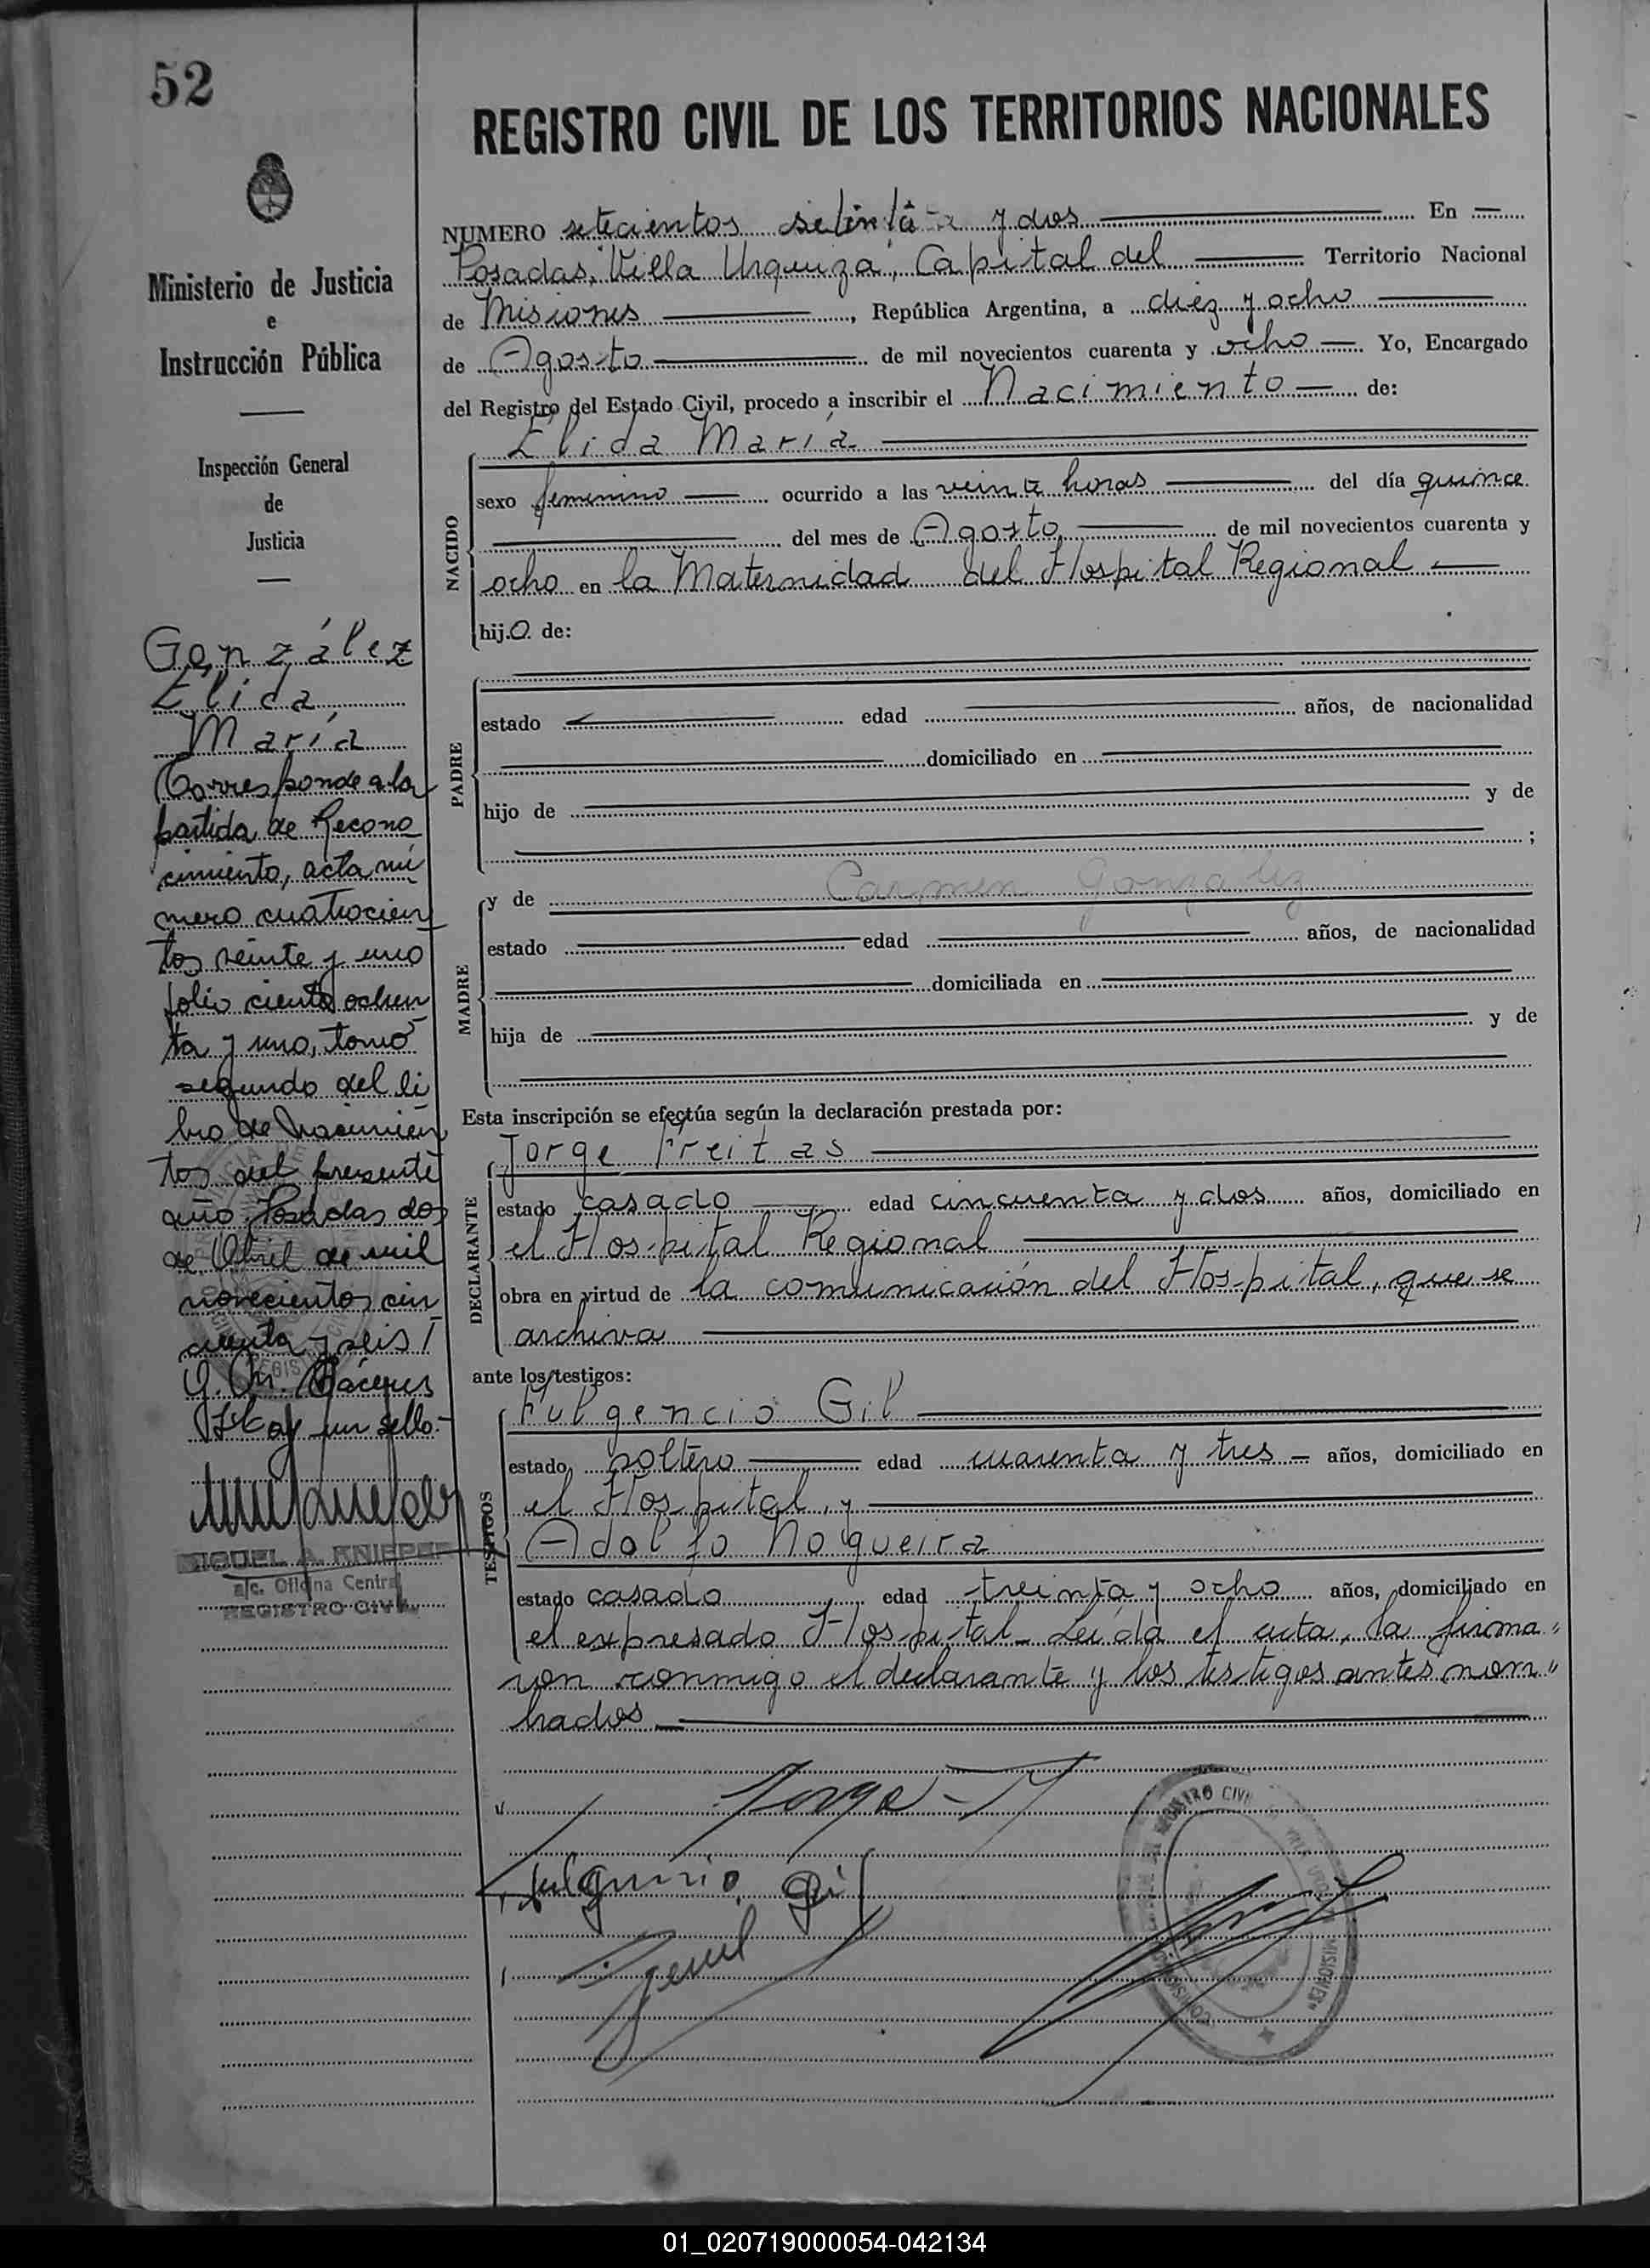 52
REGISTRO CIVIL DE LOS TERRITORIOS NACIONALES
Ministerio de Justicia
e
Instrucción Pública
Inspección General
de
Justicia
González
Elida
María
Corresponde a la
partida de Recono
cimiento, acta nú
mero cuatrocien
tos veinte y uno
folio ciento ochen
ta y uno, tomo
segundo del li
bro de Nacimien
tos del presente
año. Posadas dos
de Abril de mil
novecientos cin
cuenta y seis
Cáceres
Hay un sello.-
MIGUEL A. KNIEPER
a/c. Oficina Central
REGISTRO CIVIL
NUMERO setecientos setenta y dos En
Posadas, "Villa Urquiza", Capital del Territorio Nacional
de Misiones, República Argentina, a diez y ocho
de Agosto de mil novecientos cuarenta y ocho Yo, Encargado
del Registro del Estado Civil, procedo a inscribir el Nacimiento de:
Elida María
NACIDO
sexo femenino ocurrido a las veinte horas del día quince
del mes de Agosto de mil novecientos cuarenta y
ocho en la Maternidad del Hospital Regional
hijo de:
PADRE
estado edad años, de nacionalidad
domiciliado en
hijo de y de
;
MADRE
y de Carmen Gonzalez
estado edad años, de nacionalidad
domiciliada en
hija de y de
Esta inscripción se efectúa según la declaración prestada por:
DECLARANTE
Jorge Freitas
estado casado edad cincuenta y dos años, domiciliado en
el Hospital Regional
obra en virtud de la comunicación del Hospital, que se
archiva
ante los testigos:
TESTIGOS
Fulgencio Gil
estado soltero edad cuarenta y tres años, domiciliado en
el Hospital, y
Adolfo Nogueira
estado casado edad treinta y ocho años, domiciliado en
el expresado Hospital. Leída el acta, la firma"
ron conmigo el declarante y los testigos antes nom"
brados
Jorge
Fulgencio Gil
REGISTRO CIVIL
MISIONES
01_020719000054-042134